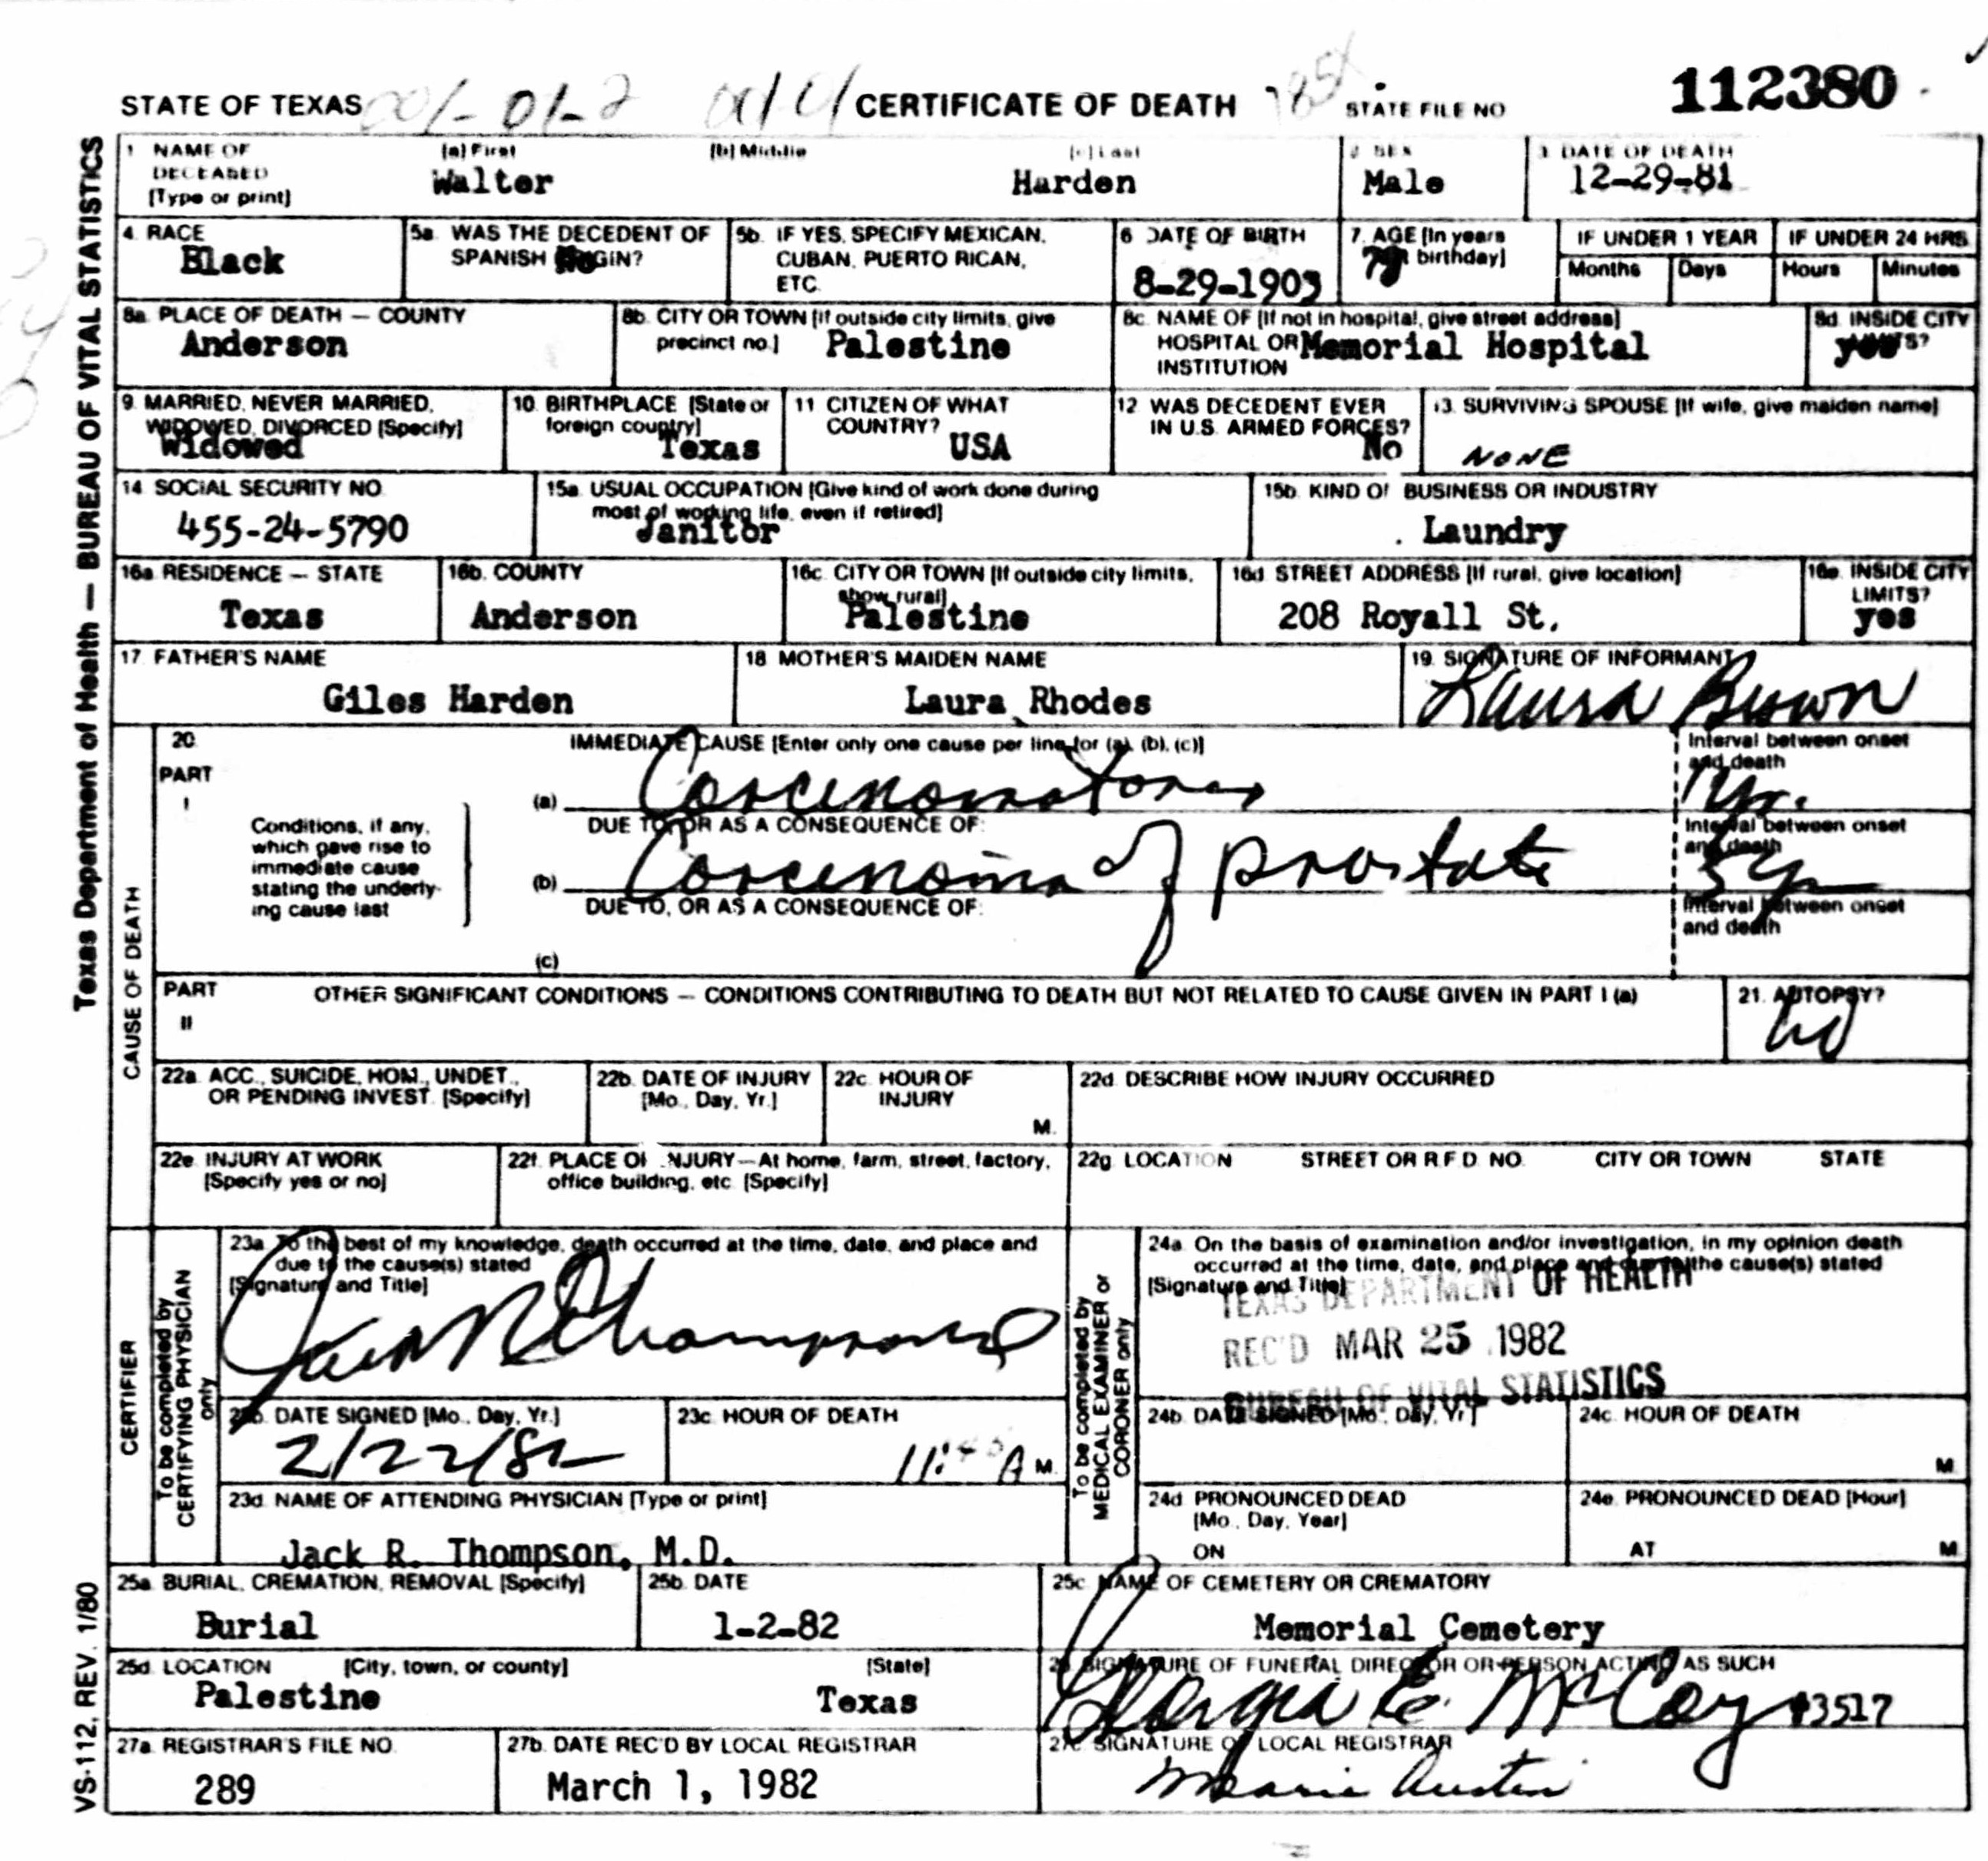 STATE OF TEXAS 001-01-2 CERTIFICATE OF DEATH STATE FILE NO 112380
Texas Department of Health — BUREAU OF VITAL STATISTICS
1 NAME OF DECEASED [Type or print] (a) First (b) Middle (c) Last
Walter Harden
2 SEX
Male
3 DATE OF DEATH
12-29-81
4. RACE
Black
5a. WAS THE DECEDENT OF SPANISH ORIGIN?
No
5b. IF YES, SPECIFY MEXICAN, CUBAN, PUERTO RICAN, ETC.
6 DATE OF BIRTH
8-29-1903
7. AGE [In years birthday]
78
IF UNDER 1 YEAR
Months Days
IF UNDER 24 HRS.
Hours Minutes
8a. PLACE OF DEATH — COUNTY
Anderson
8b. CITY OR TOWN [If outside city limits, give precinct no.]
Palestine
8c. NAME OF [If not in hospital, give street address] HOSPITAL OR INSTITUTION
Memorial Hospital
8d. INSIDE CITY LIMITS?
yes
9. MARRIED, NEVER MARRIED, WIDOWED, DIVORCED [Specify]
Widowed
10. BIRTHPLACE [State or foreign country]
Texas
11. CITIZEN OF WHAT COUNTRY?
USA
12. WAS DECEDENT EVER IN U.S. ARMED FORCES?
No
13. SURVIVING SPOUSE [If wife, give maiden name]
NONE
14. SOCIAL SECURITY NO.
455-24-5790
15a. USUAL OCCUPATION [Give kind of work done during most of working life, even if retired]
Janitor
15b. KIND OF BUSINESS OR INDUSTRY
Laundry
16a. RESIDENCE — STATE
Texas
16b. COUNTY
Anderson
16c. CITY OR TOWN [If outside city limits, show rural]
Palestine
16d. STREET ADDRESS [If rural, give location]
208 Royall St.
16e. INSIDE CITY LIMITS?
yes
17. FATHER'S NAME
Giles Harden
18. MOTHER'S MAIDEN NAME
Laura Rhodes
19. SIGNATURE OF INFORMANT
Laura Brown
CAUSE OF DEATH
20. PART I
IMMEDIATE CAUSE [Enter only one cause per line for (a), (b), (c)]
Conditions, if any, which gave rise to immediate cause stating the underlying cause last
(a) Carcinomatosis
Interval between onset and death
1 yr.
DUE TO, OR AS A CONSEQUENCE OF:
(b) Carcinoma of prostate
Interval between onset and death
5 yr
DUE TO, OR AS A CONSEQUENCE OF:
(c)
Interval between onset and death
PART II
OTHER SIGNIFICANT CONDITIONS — CONDITIONS CONTRIBUTING TO DEATH BUT NOT RELATED TO CAUSE GIVEN IN PART I (a)
21. AUTOPSY?
no
22a. ACC., SUICIDE, HOM., UNDET., OR PENDING INVEST. [Specify]
22b. DATE OF INJURY [Mo., Day, Yr.]
22c. HOUR OF INJURY M.
22d. DESCRIBE HOW INJURY OCCURRED
22e. INJURY AT WORK [Specify yes or no]
22f. PLACE OF INJURY—At home, farm, street, factory, office building, etc. [Specify]
22g. LOCATION STREET OR R.F.D. NO. CITY OR TOWN STATE
CERTIFIER
To be completed by CERTIFYING PHYSICIAN only
23a. To the best of my knowledge, death occurred at the time, date, and place and due to the cause(s) stated
[Signature and Title]
Jack R Thompson
23b. DATE SIGNED [Mo., Day, Yr.]
2/22/82
23c. HOUR OF DEATH
11:45 A M.
23d. NAME OF ATTENDING PHYSICIAN [Type or print]
Jack R. Thompson, M.D.
To be completed by MEDICAL EXAMINER or CORONER only
24a. On the basis of examination and/or investigation, in my opinion death occurred at the time, date, and place and due to the cause(s) stated
[Signature and Title]
TEXAS DEPARTMENT OF HEALTH
REC'D MAR 25 1982
BUREAU OF VITAL STATISTICS
24b. DATE SIGNED [Mo., Day, Yr.]
24c. HOUR OF DEATH M.
24d. PRONOUNCED DEAD [Mo., Day, Year] ON
24e. PRONOUNCED DEAD [Hour] AT M.
25a. BURIAL, CREMATION, REMOVAL [Specify]
Burial
25b. DATE
1-2-82
25c. NAME OF CEMETERY OR CREMATORY
Memorial Cemetery
25d. LOCATION [City, town, or county] [State]
Palestine Texas
26. SIGNATURE OF FUNERAL DIRECTOR OR PERSON ACTING AS SUCH
Georgia E. McCoy #3517
27a. REGISTRAR'S FILE NO.
289
27b. DATE REC'D BY LOCAL REGISTRAR
March 1, 1982
27c. SIGNATURE OF LOCAL REGISTRAR
Marie Austin
VS-112, REV. 1/80